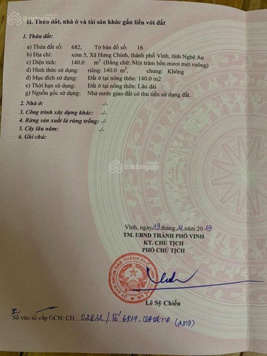 II. Thửa đất, nhà ở và tài sản khác gắn liền với đất
1. Thửa đất:
a) Thửa đất số: 682, Tờ bản đồ số: 16
b) Địa chỉ: xóm 5, Xã Hưng Chính, thành phố Vinh, tỉnh Nghệ An
c) Diện tích: 140.0 m² (Bằng chữ: Một trăm bốn mươi mét vuông)
d) Hình thức sử dụng: riêng: 140.0 m², chung: Không
đ) Mục đích sử dụng: Đất ở tại nông thôn: 140.0 m2
e) Thời hạn sử dụng: Đất ở tại nông thôn: Lâu dài
g) Nguồn gốc sử dụng: Nhà nước giao đất có thu tiền sử dụng đất.
2. Nhà ở: -/-
3. Công trình xây dựng khác: -/-
4. Rừng sản xuất là rừng trồng: -/-
5. Cây lâu năm: -/-
6. Ghi chú:
Vinh, ngày 19 tháng năm 2019
TM. UBND THÀNH PHỐ VINH
KT. CHỦ TỊCH
PHÓ CHỦ TỊCH
Lê Sỹ Chiến
Số vào sổ cấp GCN: CH